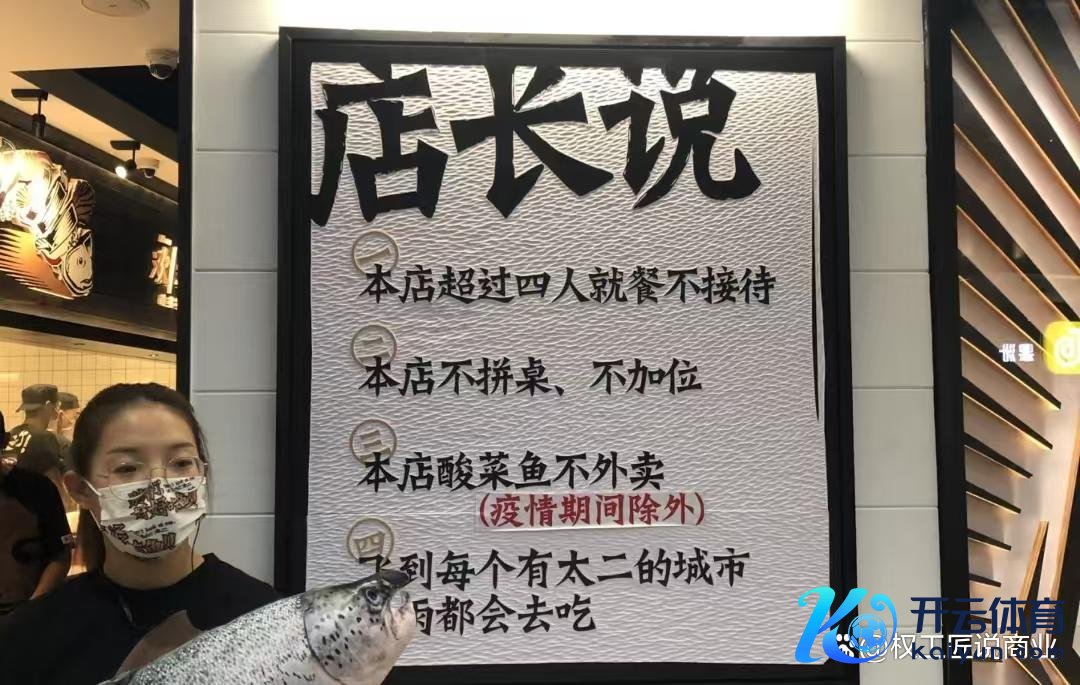 店长说
一
本店超过四人就餐不接待
二
本店不拼桌、不加位
三
本店酸菜鱼不外卖
(疫情期间除外)
四
飞到每个有太二的城市
雨都会去吃
开云体育
kaiyun.com
@权工匠说商业